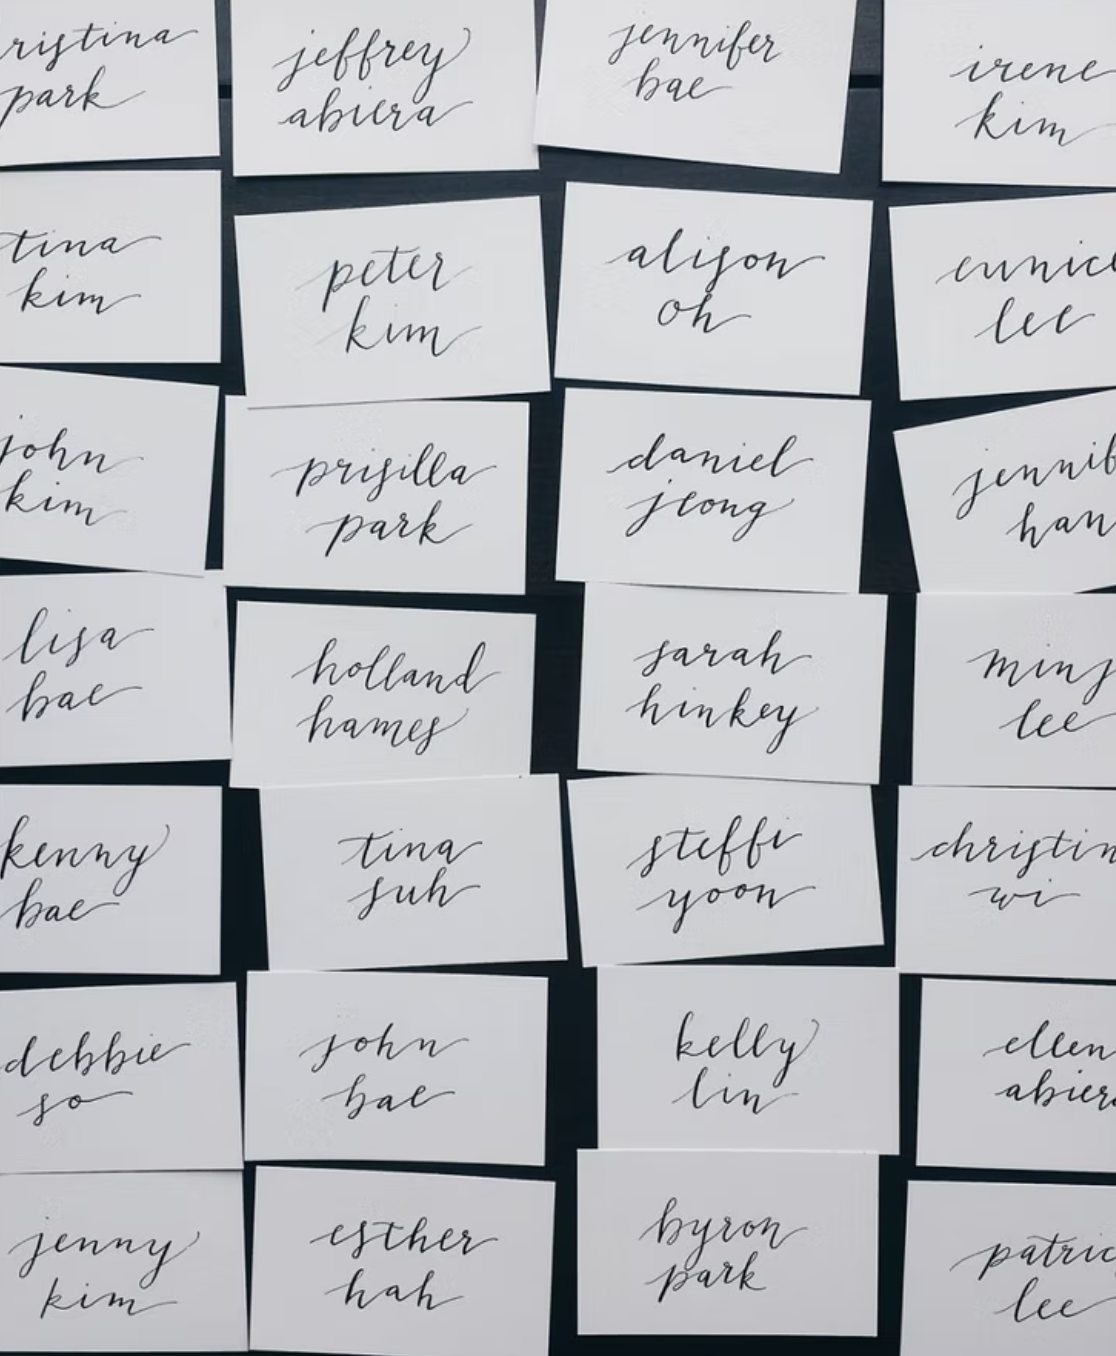 ristina
park
jeffrey
abiera
jennifer
bae
irene
kim
tina
kim
peter
kim
alison
oh
eunice
lee
john
kim
prisilla
park
daniel
jeong
jennif
han
lisa
bae
holland
hames
sarah
hinkey
minj
lee
kenny
bae
tina
suh
steffi
yoon
christin
wi
debbie
so
john
bae
kelly
lin
ellen
abiera
jenny
kim
esther
hah
byron
park
patric
lee